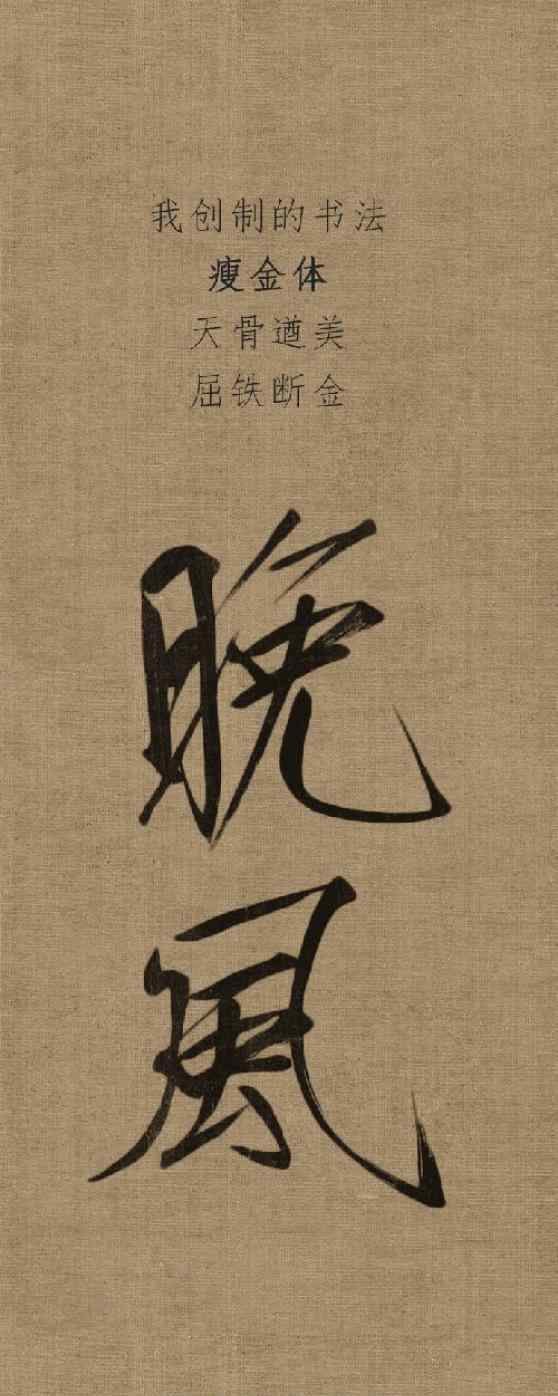 我创制的书法
瘦金体
天骨遒美
屈铁断金
晚
風